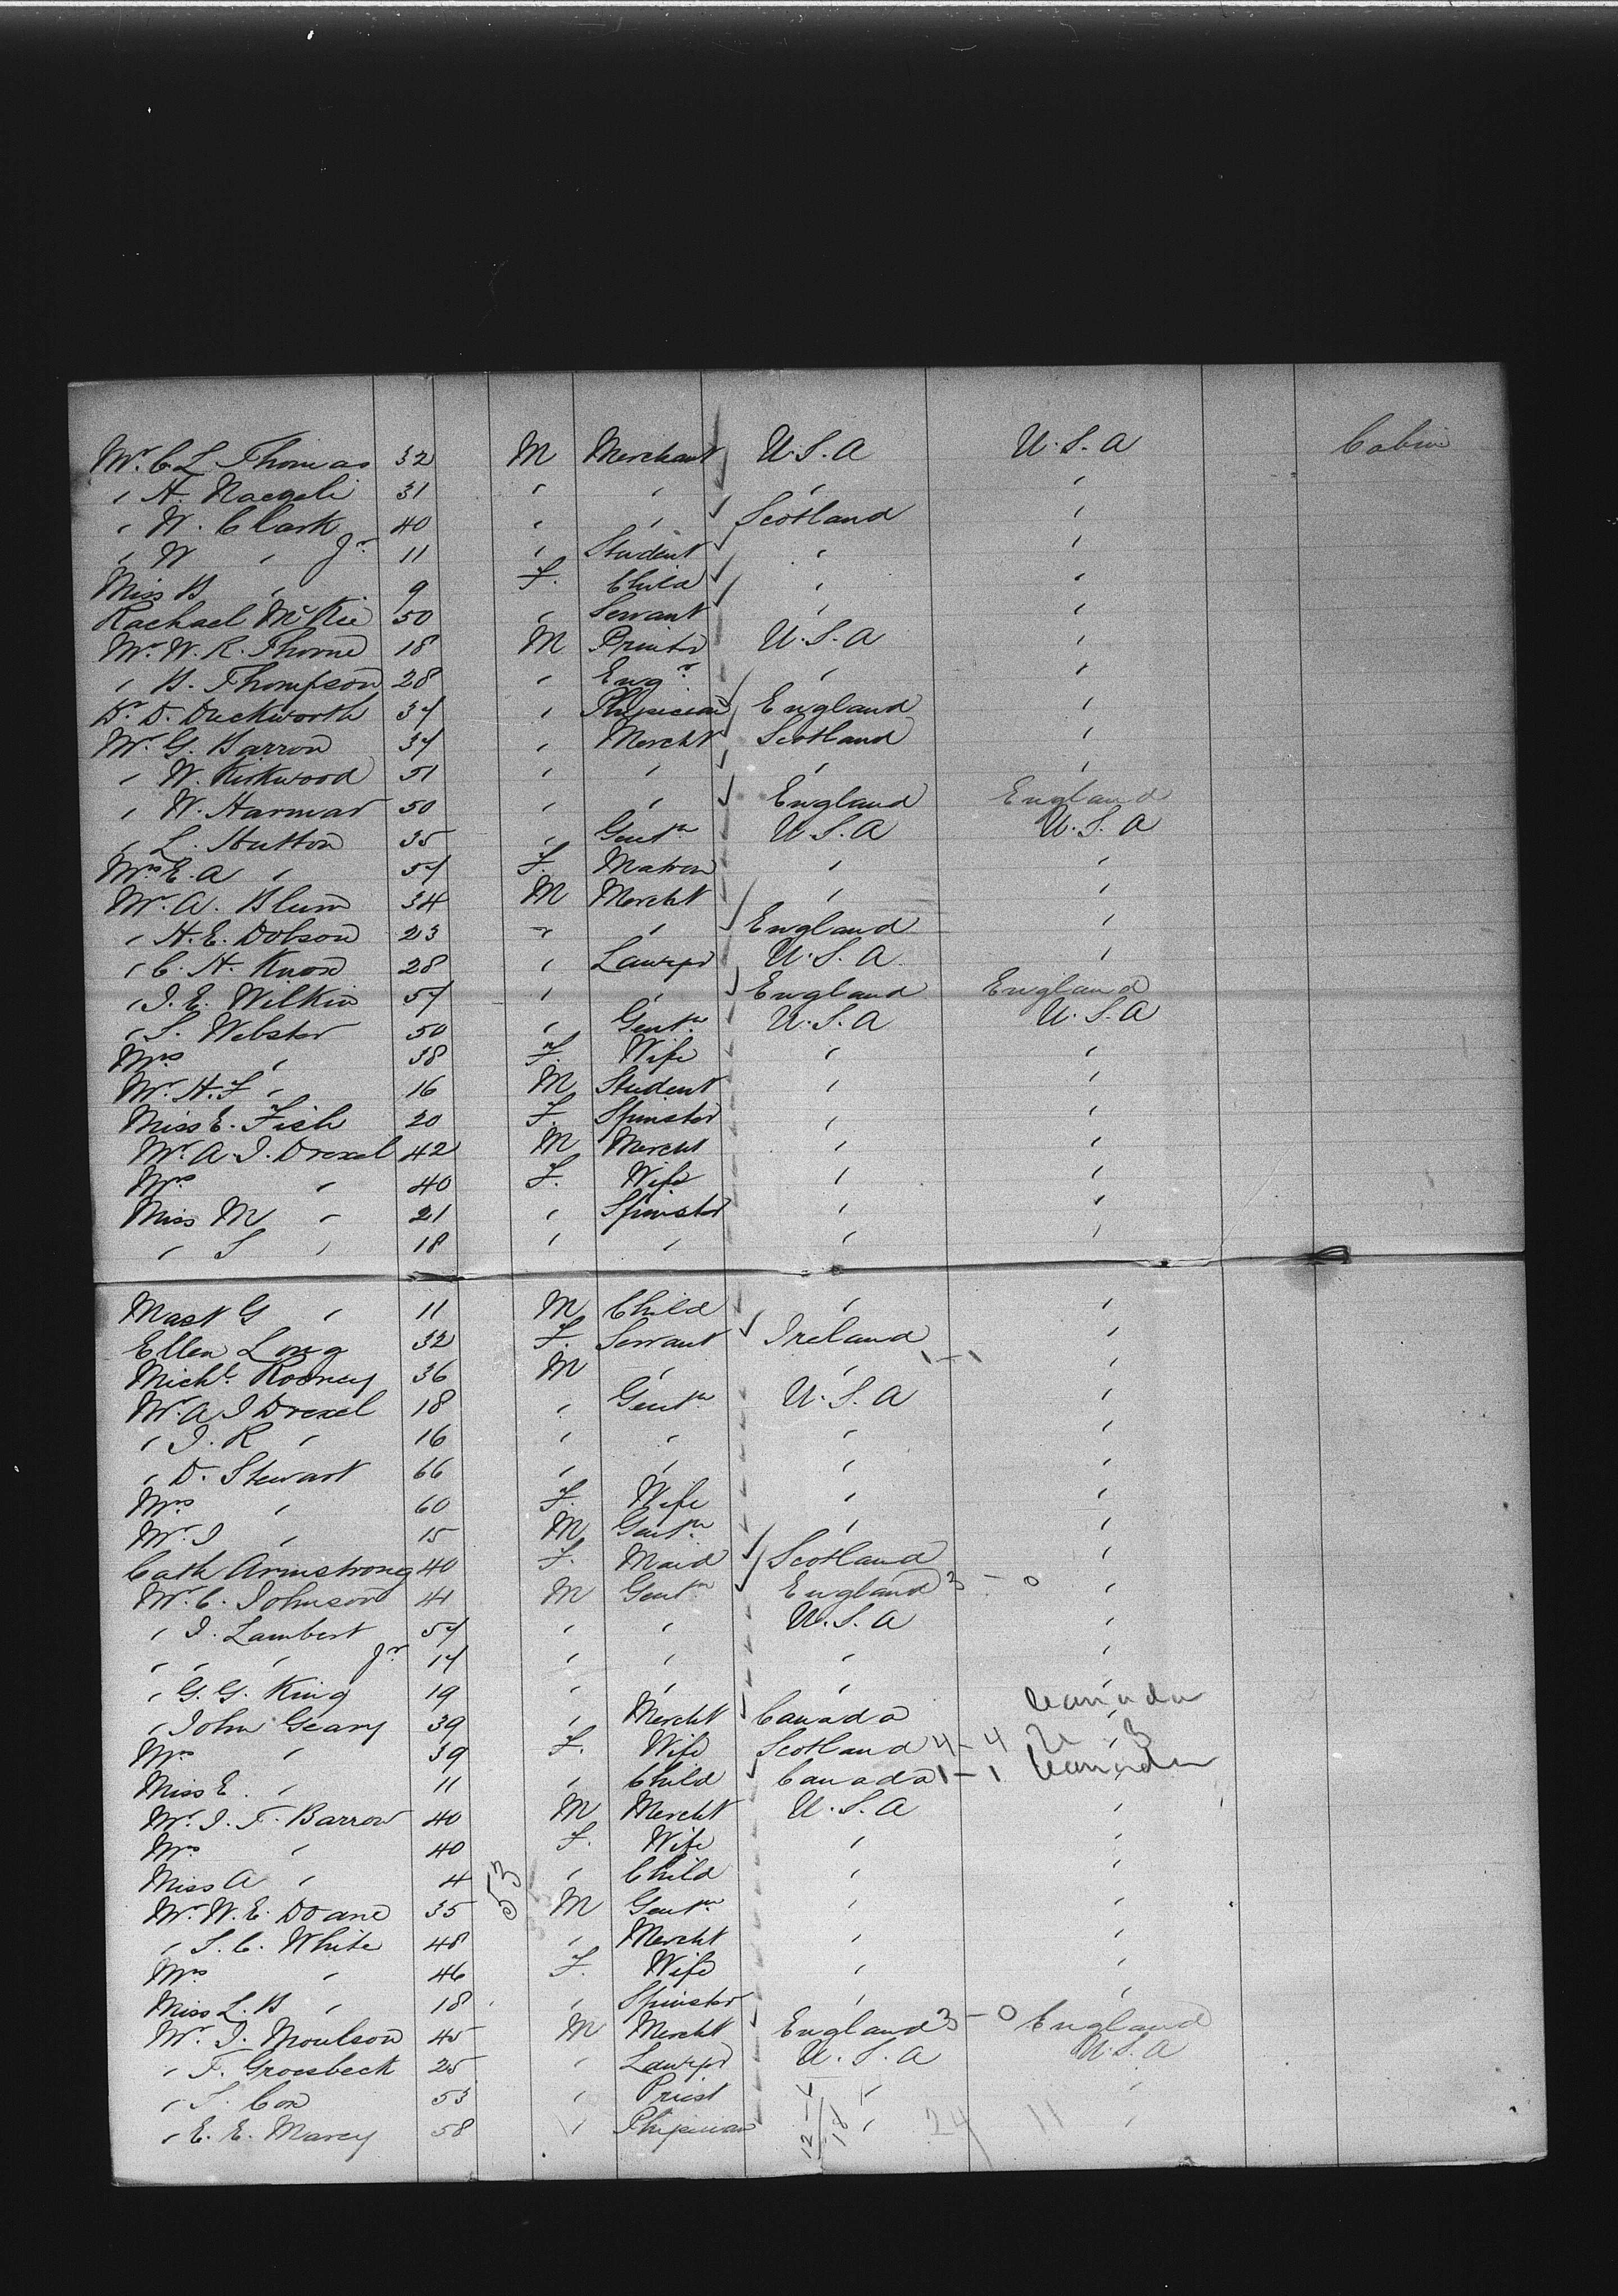 Mr. C. L. Thomas 32 M Merchant U.S.A U.S.A Cabin
" H. Naegeli 31 " " " "
" W. Clark 40 " " Scotland "
" W " Jr. 11 " Student " "
Miss B " 9 F. Child " "
Rachael McKie 50 " Servant " "
Mr. W. R. Thorne 18 M Printer U.S.A "
" B. Thompson 28 " Engr. " "
Dr. D. Duckworth 37 " Physician England "
Mr. G. Barron 37 " Mercht Scotland "
" W. Kirkwood 51 " " " "
" W. Harmar 50 " " England England
" L. Hutton 35 " Gentn U.S.A U.S.A
Mrs. E. A " 57 F. Matron " "
Mr. A. Blum 34 M Mercht " "
" H. E. Dobson 23 " " England "
" C. H. Knox 28 " Lawyer U.S.A "
" J. E. Wilkin 57 " " England England
" S. Webster 50 " Gentn. U.S.A U.S.A
Mrs " 38 F. Wife " "
Mr. H. F " 16 M Student " "
Miss E. Fish 20 F. Spinster " "
Mr. A. J. Drexel 42 M Mercht " "
Mrs " 40 F. Wife " "
Miss M " 21 " Spinster " "
" S " 18 " " " "
Mast G " 11 M Child " "
Ellen Long 32 F. Servant Ireland "
Michl. Rooney 36 M " " 1-1 "
Mr. A J Drexel 18 " Gentn U.S.A "
" J. R " 16 " " " "
" D. Stewart 66 " " " "
Mrs. " 60 F. Wife " "
Mr. J " 15 M Gentn. " "
Cath Armstrong 40 F. Maid Scotland "
Mr. C. Johnson 41 M Gentn England 3-0 "
" J. Lambert 57 " " U.S.A "
" " " Jr. 17 " " " "
" G. G. King 19 " " " "
" John Geary 39 " Mercht Canada " Canada
Mrs " 39 F. Wife Scotland 4-4 "
Miss E. " 11 " Child Canada 1-1 " Canada
Mr. J. F. Barrow 40 M Mercht U.S.A "
Mrs " 40 F. Wife " "
Miss A " 4 " Child " "
53
Mr. W. E. Doane 35 M Gentn. " "
" S. C. White 48 " Mercht " "
Mrs " 46 F. Wife " "
Miss L. B " 18 " Spinster " "
Mr. J. Moulson 45 M Mercht England 3-0 England
" F. Groesbeck 25 " Lawyer U.S.A U.S.A
" S. Cox 53 " Priest " "
" E. E. Marcy 58 " Physician " 24 11 "